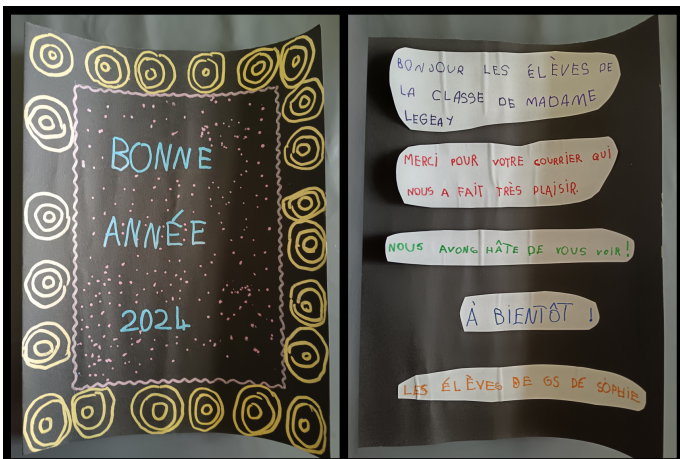 BONNE
ANNÉE
2024
BONJOUR LES ÉLÈVES DE
LA CLASSE DE MADAME
LEGEAY
MERCI POUR VOTRE COURRIER QUI
NOUS A FAIT TRÈS PLAISIR.
NOUS AVONS HÂTE DE VOUS VOIR !
À BIENTÔT !
LES ÉLÈVES DE GS DE SOPHIE